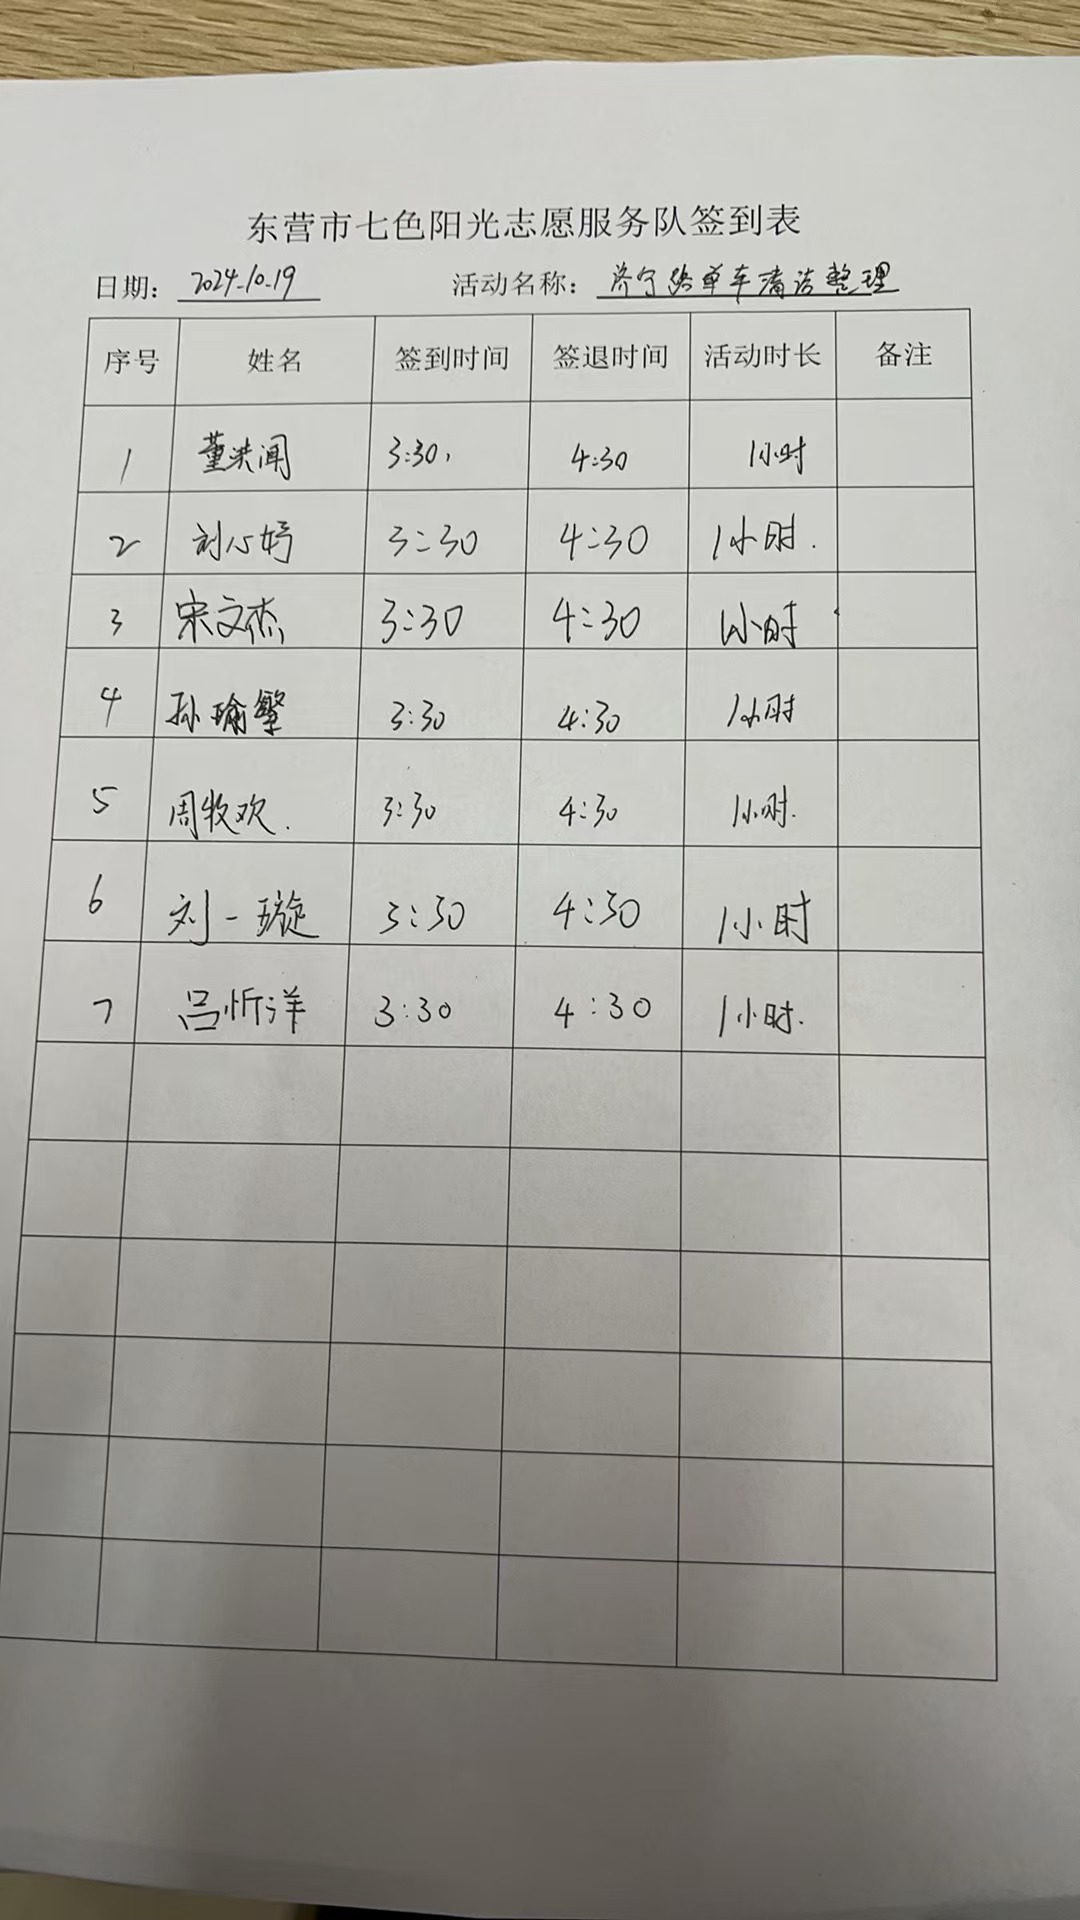 东营市七色阳光志愿服务队签到表
日期：2024.10.19 活动名称：济宁路单车清洁整理
序号 姓名 签到时间 签退时间 活动时长 备注
1 董洪闻 3:30. 4:30 1小时
2 刘心妤 3:30 4:30 1小时.
3 宋文杰 3:30 4:30 1小时
4 孙瑜繁 3:30 4:30 1小时
5 周牧欢. 3:30 4:30 1小时.
6 刘一璇 3:30 4:30 1小时
7 吕忻洋 3:30 4:30 1小时.